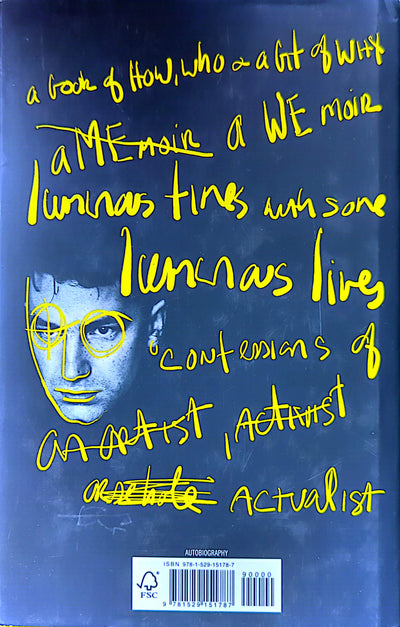 a book of HOW, WHO & a bit of WHY
a MEmoir a WE moir
luminous times with some
luminous lives
confessions of
an artist, Activist
Actualist
AUTOBIOGRAPHY
ISBN 978-1-529-15178-7
90000
FSC
9 781529 151787